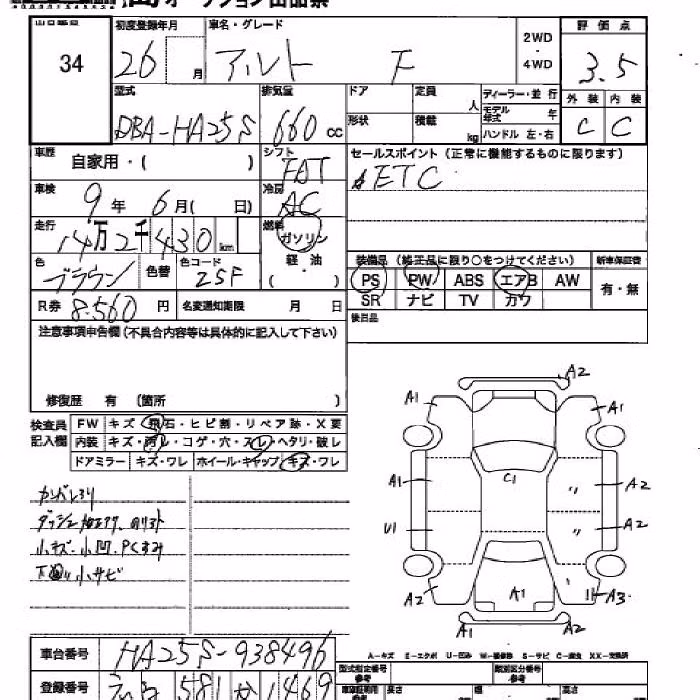 オークション出品票
出品番号 34
初度登録年月 26 月
車名・グレード アルト F
2WD・4WD
評価点 3.5
外装 C 内装 C
型式 DBA-HA25S
排気量 660 cc
ドア 定員 人
形状 積載 kg
ディーラー・並行
モデル年式 年
ハンドル 左・右
車歴 自家用・( )
シフト FAT
セールスポイント (正常に機能するものに限ります)
ETC
車検 9年 6月( 日)
冷房 AC
走行 14万2千430 km
燃料 ガソリン 軽油 ( )
色 ブラウン 色替 色コード ZSF
装備品 (純正品に限り○をつけてください) 新車保証書
PS PW ABS エアB AW 有・無
SR ナビ TV カワ
R券 8,560 円 名変通知期限 月 日
後日品
注意事項申告欄 (不具合内容等は具体的に記入して下さい)
修復歴 有 (箇所 )
検査員記入欄
FW キズ・飛石・ヒビ割・リペア跡・X要
内装 キズ・汚レ・コゲ・穴・スレ・ヘタリ・破レ
ドアミラー キズ・ワレ ホイール・キャップ キズ・ワレ
小キズ・小凹 PCスミ
小サビ
A2
A1 A1
C1
A1 〃 A2
U1 〃 A2
A2 A1 A3
A1 A2
車台番号 HA25S-938496
登録番号 581 か 1469
A-キズ E-エクボ U-凹み W-補修跡 S-サビ C-腐食 XX-交換済
型式指定番号 参考 類別区分番号 参考
長さ 幅 高さ